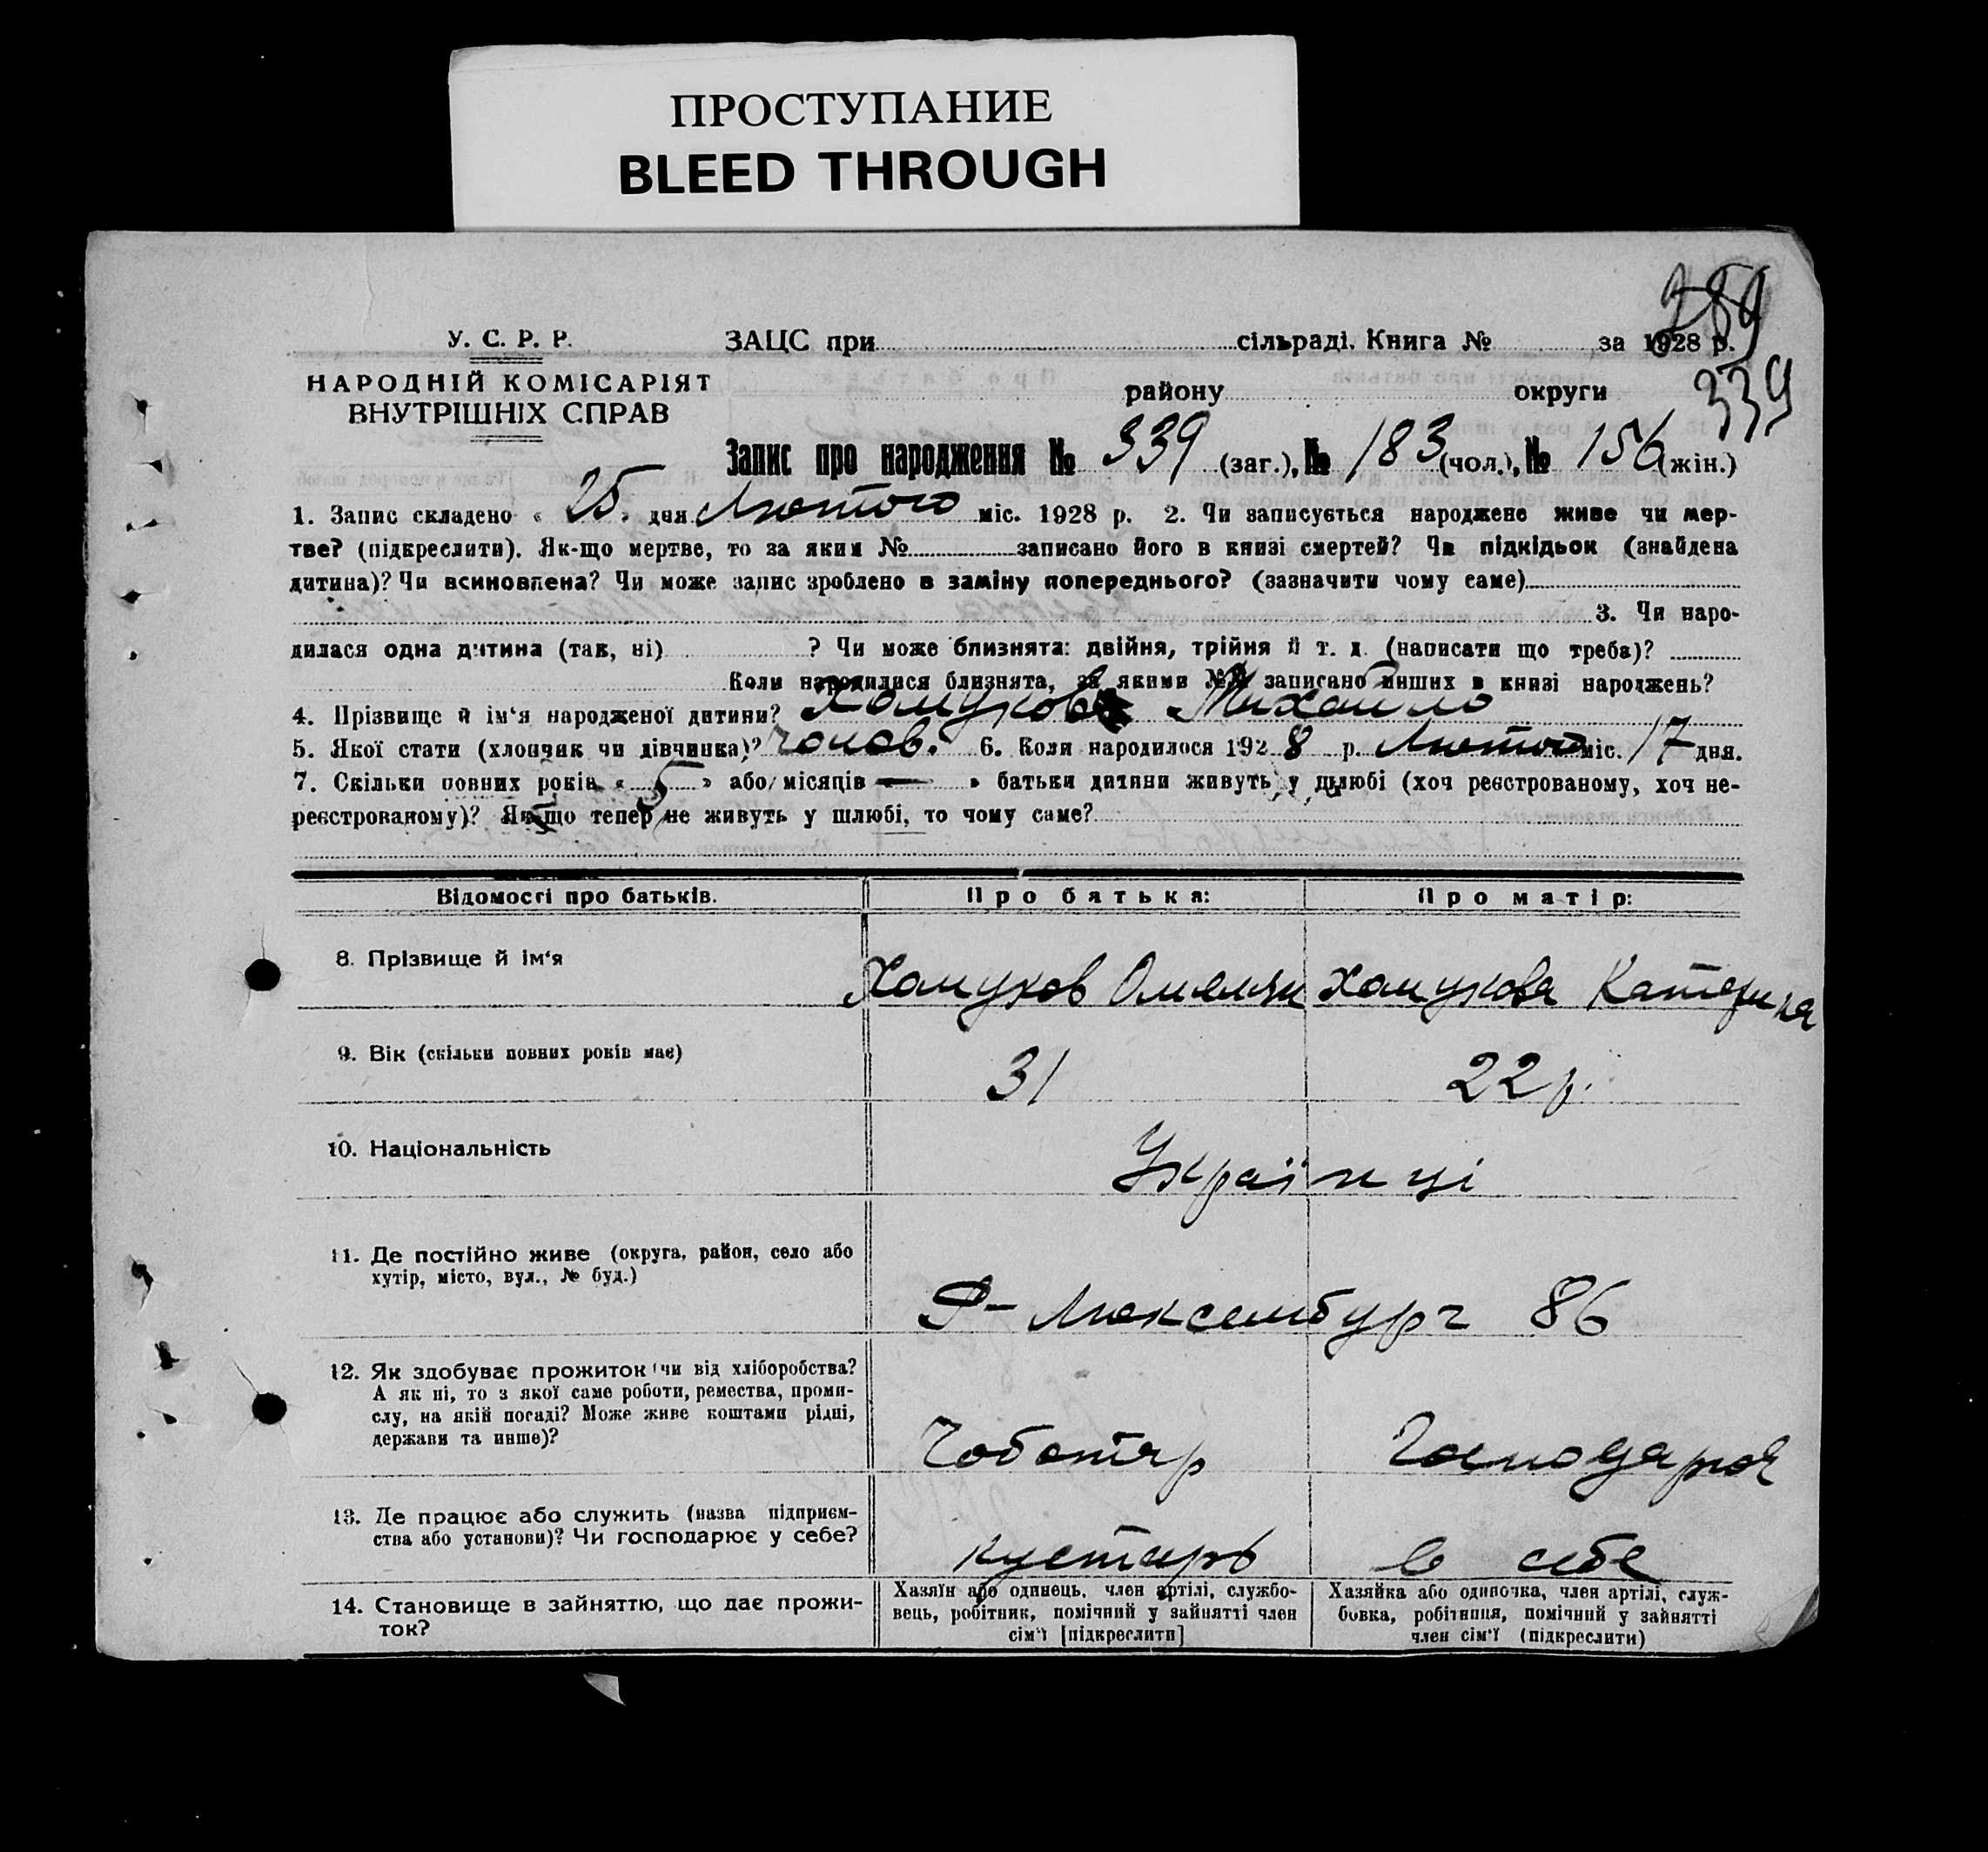 ПРОСТУПАНИЕ
BLEED THROUGH
389
У. С. Р. Р. ЗАЦС при сільраді. Книга № за 1928 р.
339
НАРОДНІЙ КОМІСАРІЯТ
ВНУТРІШНІХ СПРАВ
району округи
Запис про народження № 339 (заг.), № 183 (чол.), № 156 (жін.)
1. Запис складено « 25 » дня Лютого міс. 1928 р. 2. Чи записується народжене живе чи мер-
тве? (підкреслити). Як-що мертве, то за яким № записано його в книзі смертей? Чи підкідьок (знайдена
дитина)? Чи всиновлена? Чи може запис зроблено в заміну попереднього? (зазначити чому саме)
3. Чи наро-
дилася одна дитина (так, ні) ? Чи може близнята: двійня, трійня й т. д. (написати що треба)?
Коли народилися близнята, за якими №№ записано инших в книзі народжень?
4. Прізвище й ім'я народженої дитини? Хомуков Михайло
5. Якої стати (хлопчик чи дівчинка)? чолов. 6. Коли народилося 1928 р. Лютого міс. 17 дня.
7. Скільки повних років « 5 » або місяців — » батьки дитини живуть у шлюбі (хоч реєстрованому, хоч не-
реєстрованому)? Як-що тепер не живуть у шлюбі, то чому саме?
Відомості про батьків. Про батька: Про матір:
8. Прізвище й ім'я Хомуков Омелян Хомукова Катерина
9. Вік (скільки повних років має) 31 22 р.
10. Національність Українці
11. Де постійно живе (округа, район, село або
хутір, місто, вул., № буд.)
Р-Люксембург 86
12. Як здобуває прожиток (чи від хліборобства?
А як ні, то з якої саме роботи, ремества, проми-
слу, на якій посаді? Може живе коштами рідні,
держави та инше)?
Чоботяр Господарює
13. Де працює або служить (назва підприєм-
ства або установи)? Чи господарює у себе?
кустарь в себе
14. Становище в зайняттю, що дає прожи-
ток?
Хазяїн або одинець, член артілі, службо-
вець, робітник, помічний у зайнятті член
сім'ї [підкреслити]
Хазяйка або одиночка, член артілі, служ-
бовка, робітниця, помічний у зайнятті
член сім'ї (підкреслити)